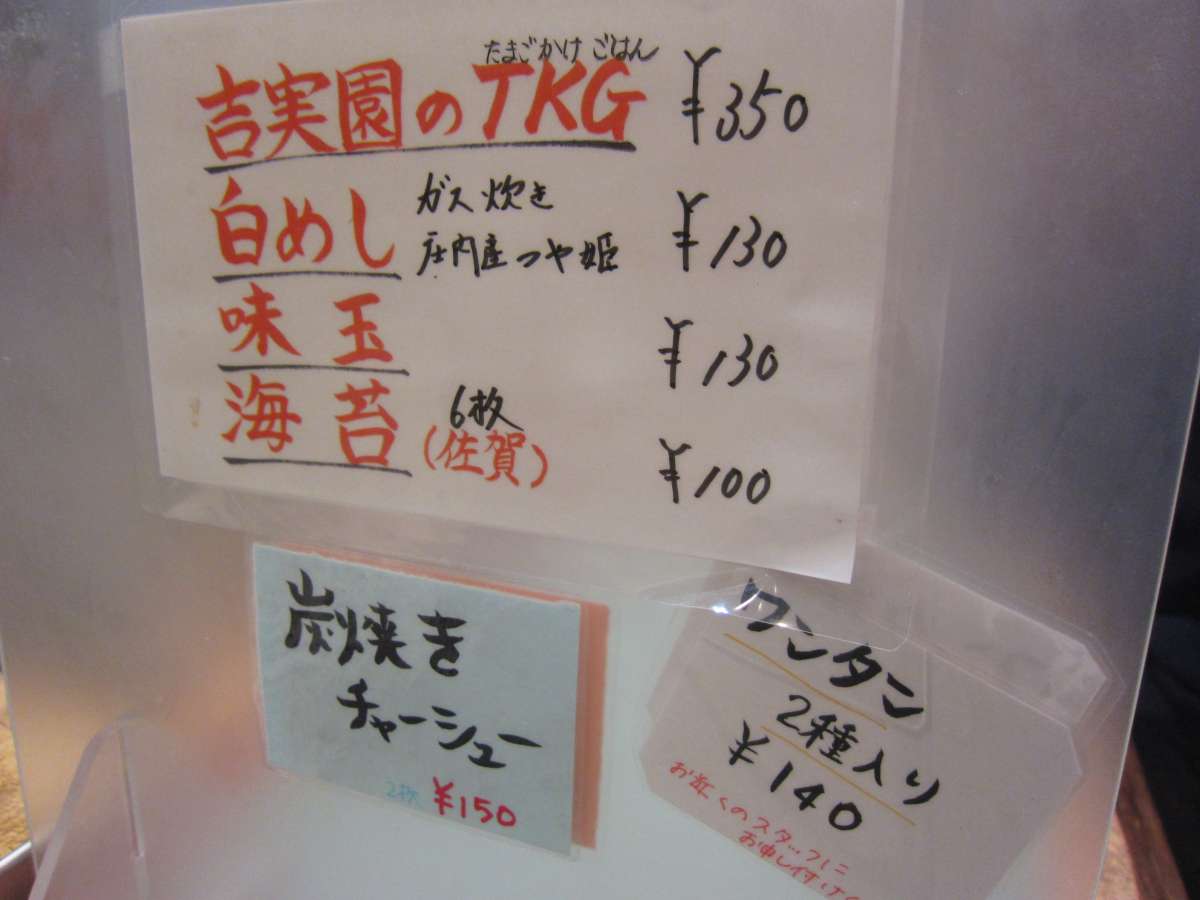 たまごかけ ごはん
吉実園のTKG ¥350
白めし ガス炊き
庄内産つや姫 ¥130
味玉 ¥130
海苔 6枚
(佐賀) ¥100
炭焼き
チャーシュー
2枚 ¥150
ワンタン
2種入り
¥140
お近くのスタッフに
お申し付け